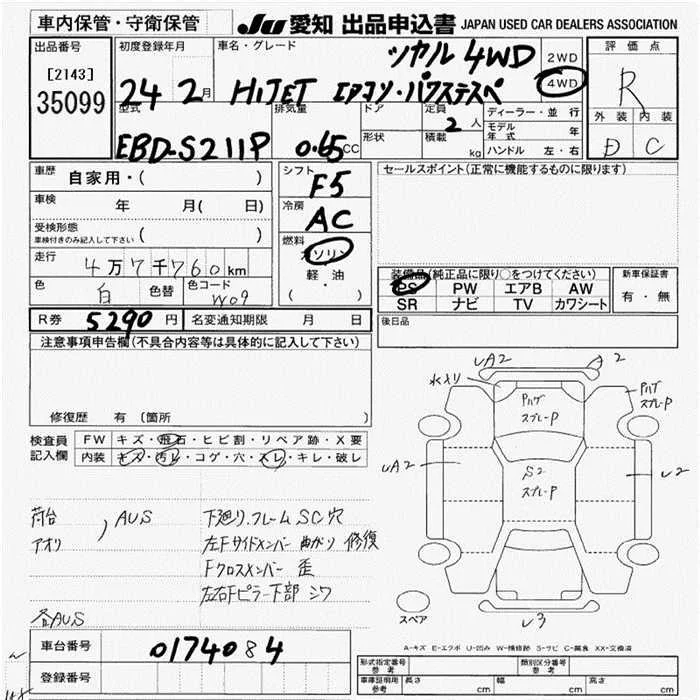 車内保管・守衛保管
JU 愛知 出品申込書 JAPAN USED CAR DEALERS ASSOCIATION
出品番号
[2143]
35099
初度登録年月
24 2月
車名・グレード
ツヤル 4WD
HIJET エアコン・パワステスペ
2WD
4WD
評価点
R
外装 内装
D C
型式
EBD-S211P
排気量
0.65 CC
ドア
形状
定員
2 人
積載 kg
ディーラー・並行
モデル年式 年
ハンドル 左・右
車歴 自家用・( )
車検 年 月( 日)
受検形態
車検付きのみ記入して下さい ( )
走行 4万7千760km
色 白 色替 色コード W09
シフト
F5
冷房
AC
燃料
ガソリン
軽・油
( ・ )
セールスポイント(正常に機能するものに限ります)
装備品(純正品に限り○をつけてください)
PS PW エアB AW
SR ナビ TV カワシート
新車保証書
有・無
R券 5290円 名変通知期限 月 日
後日品
注意事項申告欄(不具合内容等は具体的に記入して下さい)
修復歴 有 〔箇所 〕
検査員記入欄
FW キズ・飛石・ヒビ割・リペア跡・X要
内装 キズ・汚レ・コゲ・穴・スレ・キレ・破レ
荷台
アオリ
, AUS
下廻り.フレーム SC穴
左Fサイドメンバー曲がり 修復
Fクロスメンバー 歪
左右Fピラー下部 シワ
各AUS
UA2
2
水メリ
パハゲ
スプレーP
パハゲ
スプレーP
UA2
S2
スプレーP
U2
U3
スペア
A-キズ E-エクボ U-凹み W-補修跡 S-サビ C-腐食 XX-交換済
車台番号 0174084
登録番号
型式指定番号 参考
類別区分番号 参考
車庫証明用 参考
長さ cm 幅 cm 高さ cm